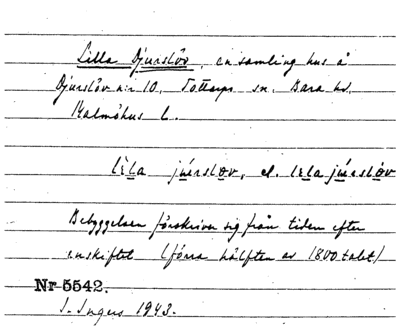 Lilla Djurslöv, en samling hus å
Djurslöv nr 10, Tottarps sn. Bara hd.
Malmöhus l.
lìla juerslöv, el. lela juérslöv
Bebyggelsen förskriver sig från tiden efter
enskiftet (förra hälften av 1800-talet)
Nr 5542.
I. Ingers 1943.